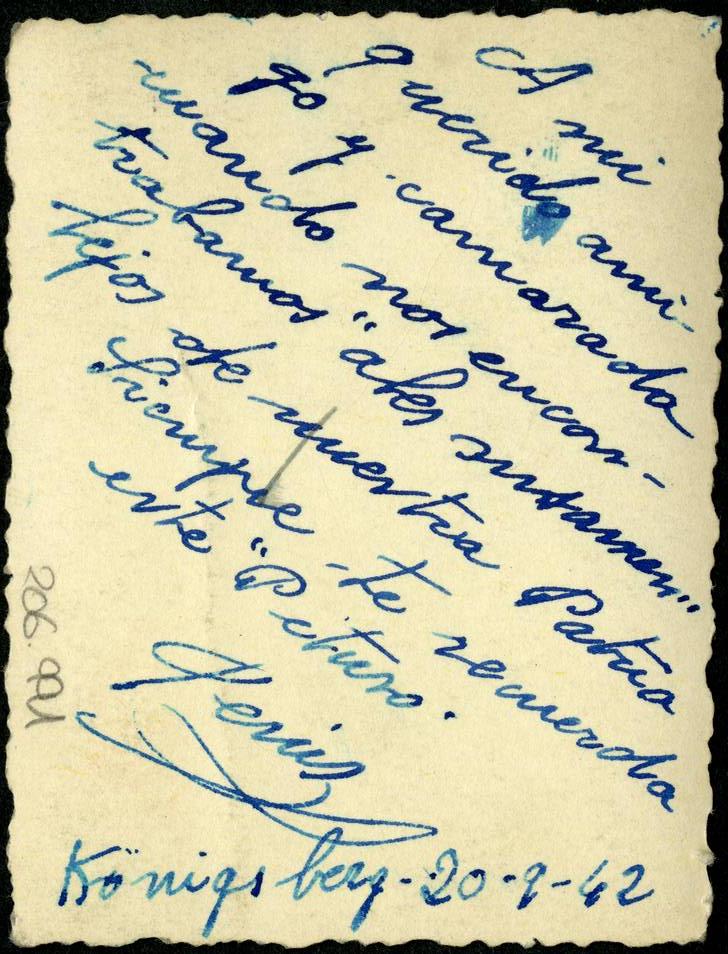 A mi
querido ami-
go y camarada
cuando nos encon-
trabamos "ales susamen"
lejos de nuestra Patria
Siempre te recuerda
este
Königsberg-20-9-42